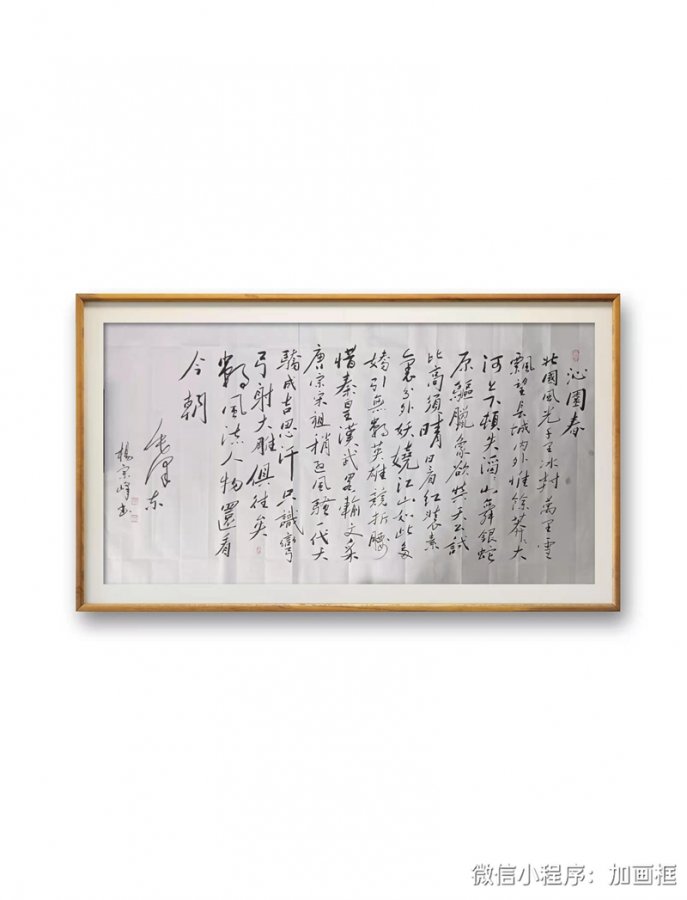 沁園春
北國風光千里冰封萬里雪
飄望長城内外惟餘莽大
河上下頓失滔山舞銀蛇
原驅臘象欲與天公試
比高須晴日看紅裝素
裹分外妖嬈江山如此多
嬌引無數英雄競折腰
惜秦皇漢武畧輸文采
唐宗宋祖稍遜風騷一代天
驕成吉思汗只識彎
弓射大雕俱往矣
數風流人物還看
今朝
毛澤东
楊宗峰书
微信小程序：加画框